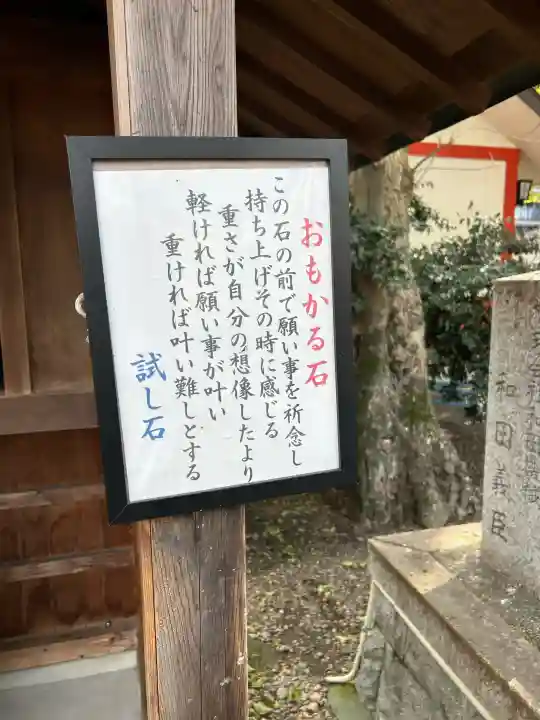 おもかる石
この石の前で願い事を祈念し
持ち上げその時に感じる
重さが自分の想像したより
軽ければ願い事が叶い
重ければ叶い難しとする
試し石
和田義臣